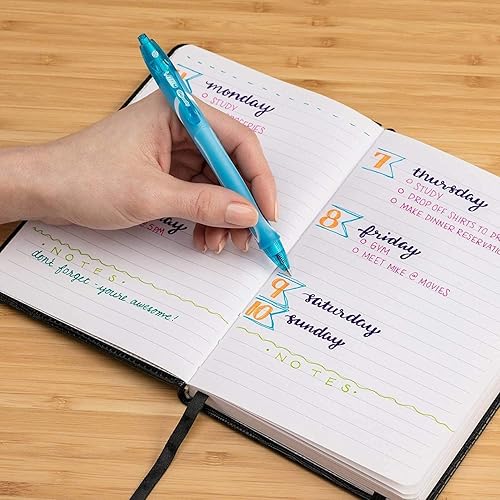 monday
STUDY
5PM
NOTES
don't forget - you're awesome!
7
thursday
STUDY
DROP OFF SHIRTS TO
MAKE DINNER RESERVATION
8
friday
GYM
MEET MIKE @ MOVIES
9
saturday
10
sunday
·NOTES·